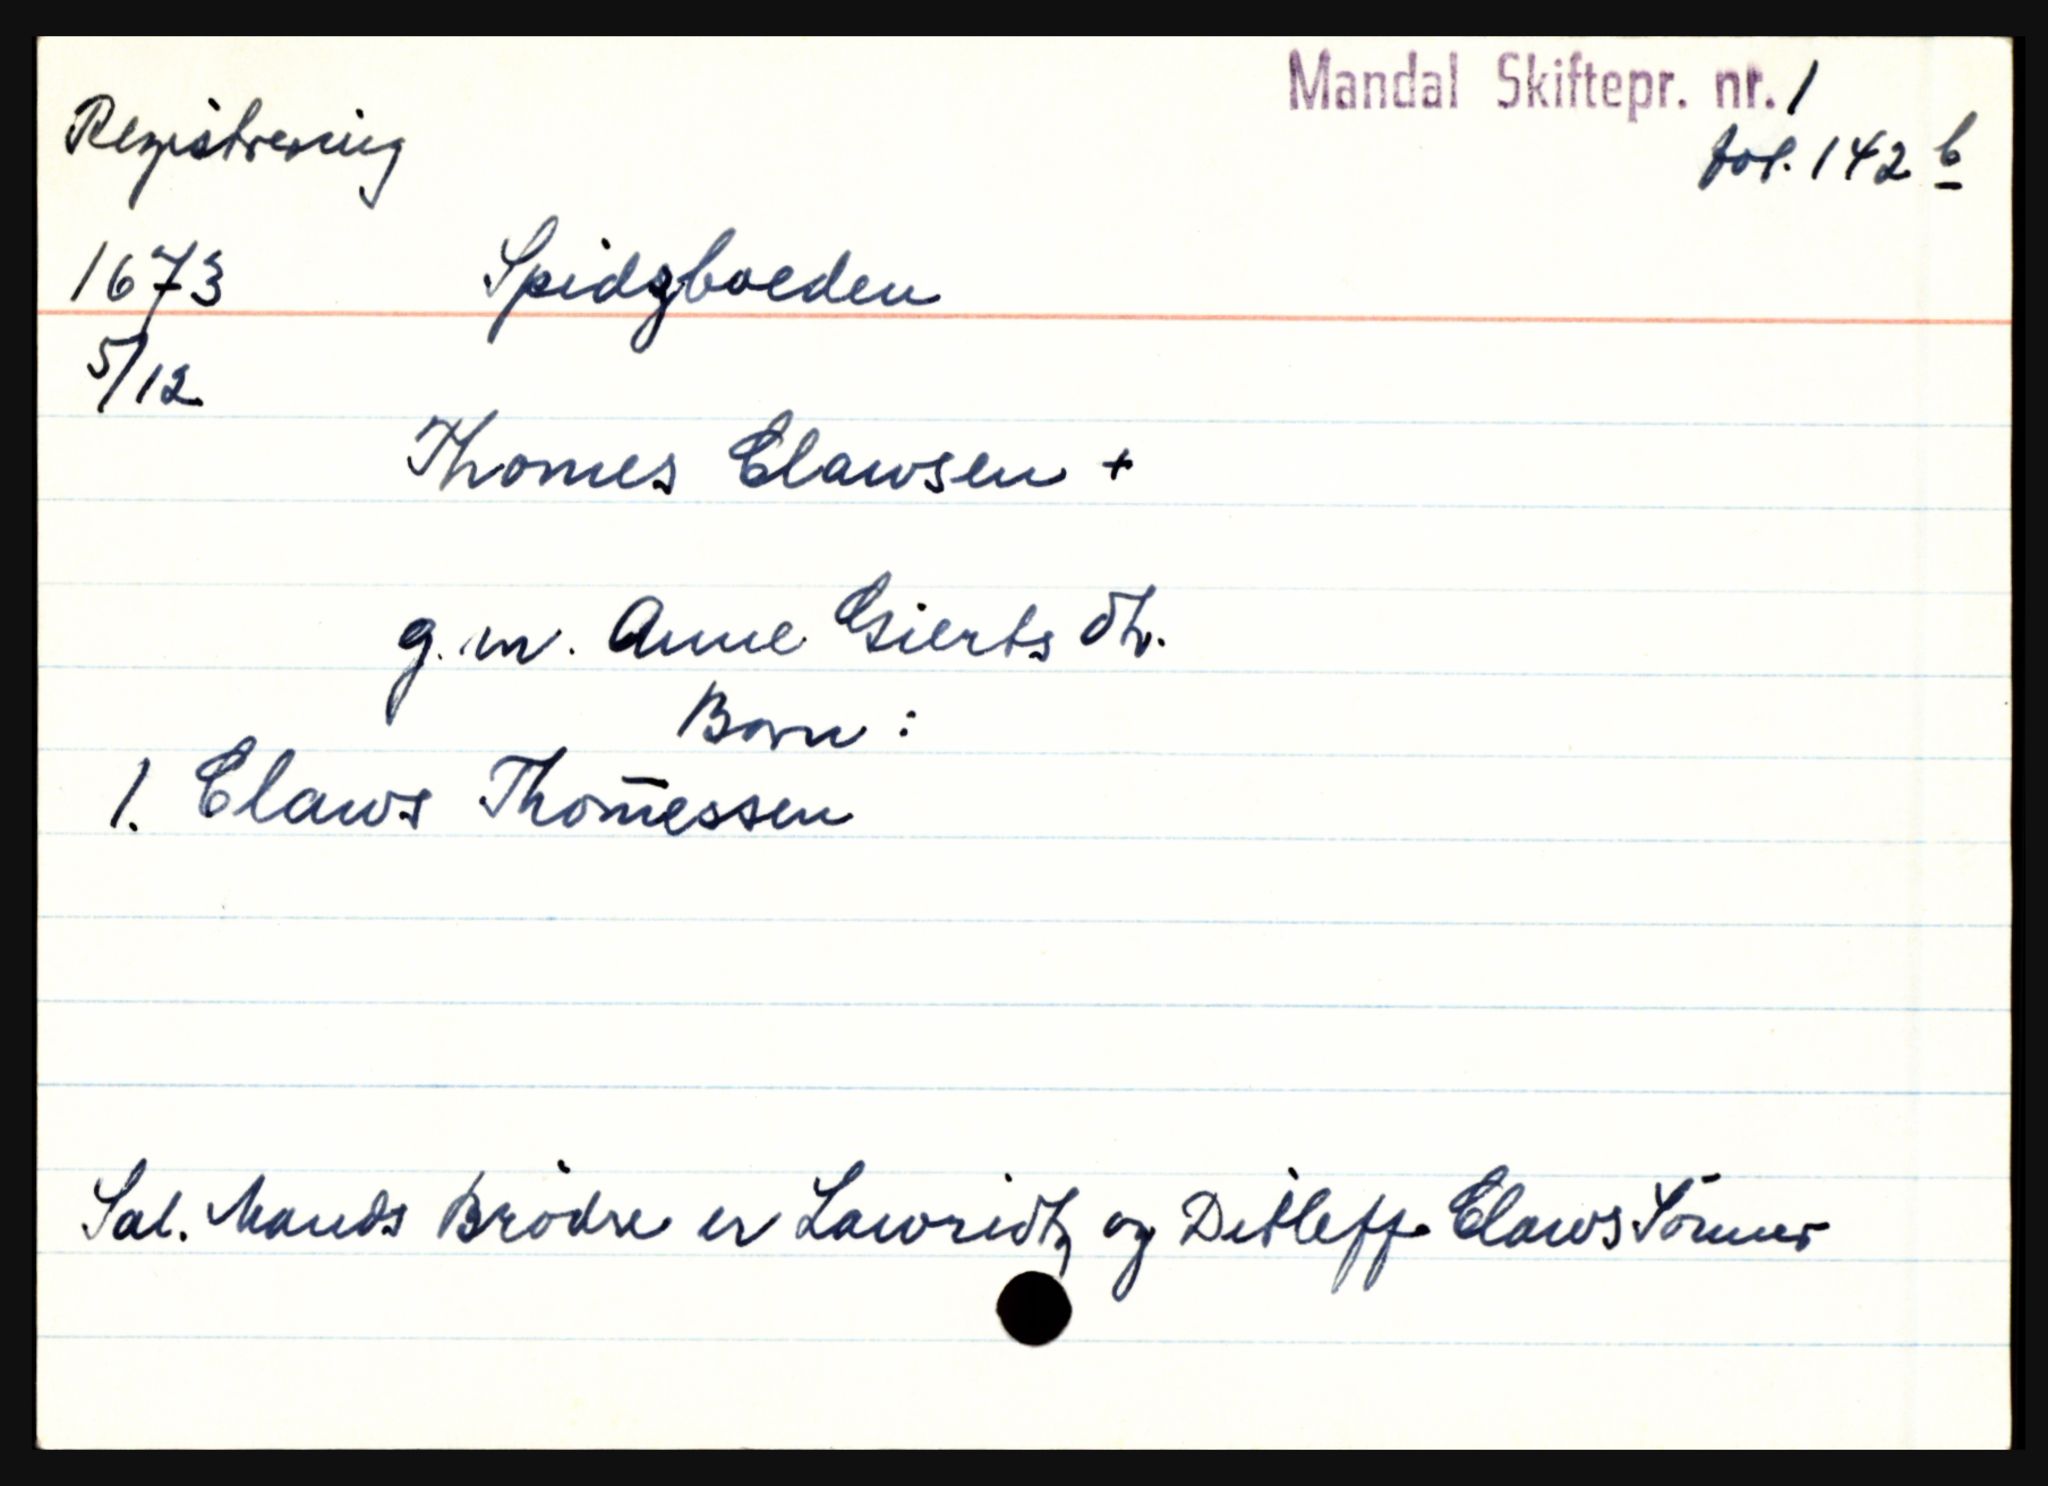 Mandal Skiftepr. nr. 1
Registrering
fol. 142 b
1673 Spidzboeden
5/12
Thomes Clawsen +
g. m. Anne Gierts dtr.
Born:
1. Claws Thom̄essen
Sal. Mands Brodre er Lawridtz og Ditleff Claws Sönner